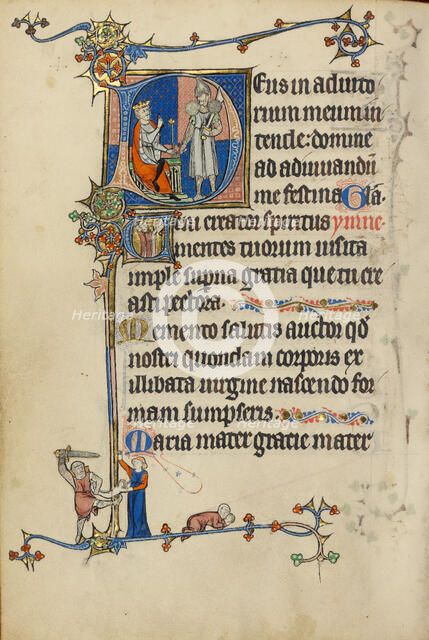 Deus in adiuto
rium meum in
tende: domine
ad adiuuandū
me festina Glā.
Veni creator spiritus ymne
mentes tuorum uisita
imple supna gratia que tu cre
asti pectora.
Memento salutis auctor qd
nostri quondam corporis ex
illibata uirgine nascendo for
mam sumpseris.
Maria mater gracie mater
Heritage
Heritage
Heritage
Heritage
Heritage